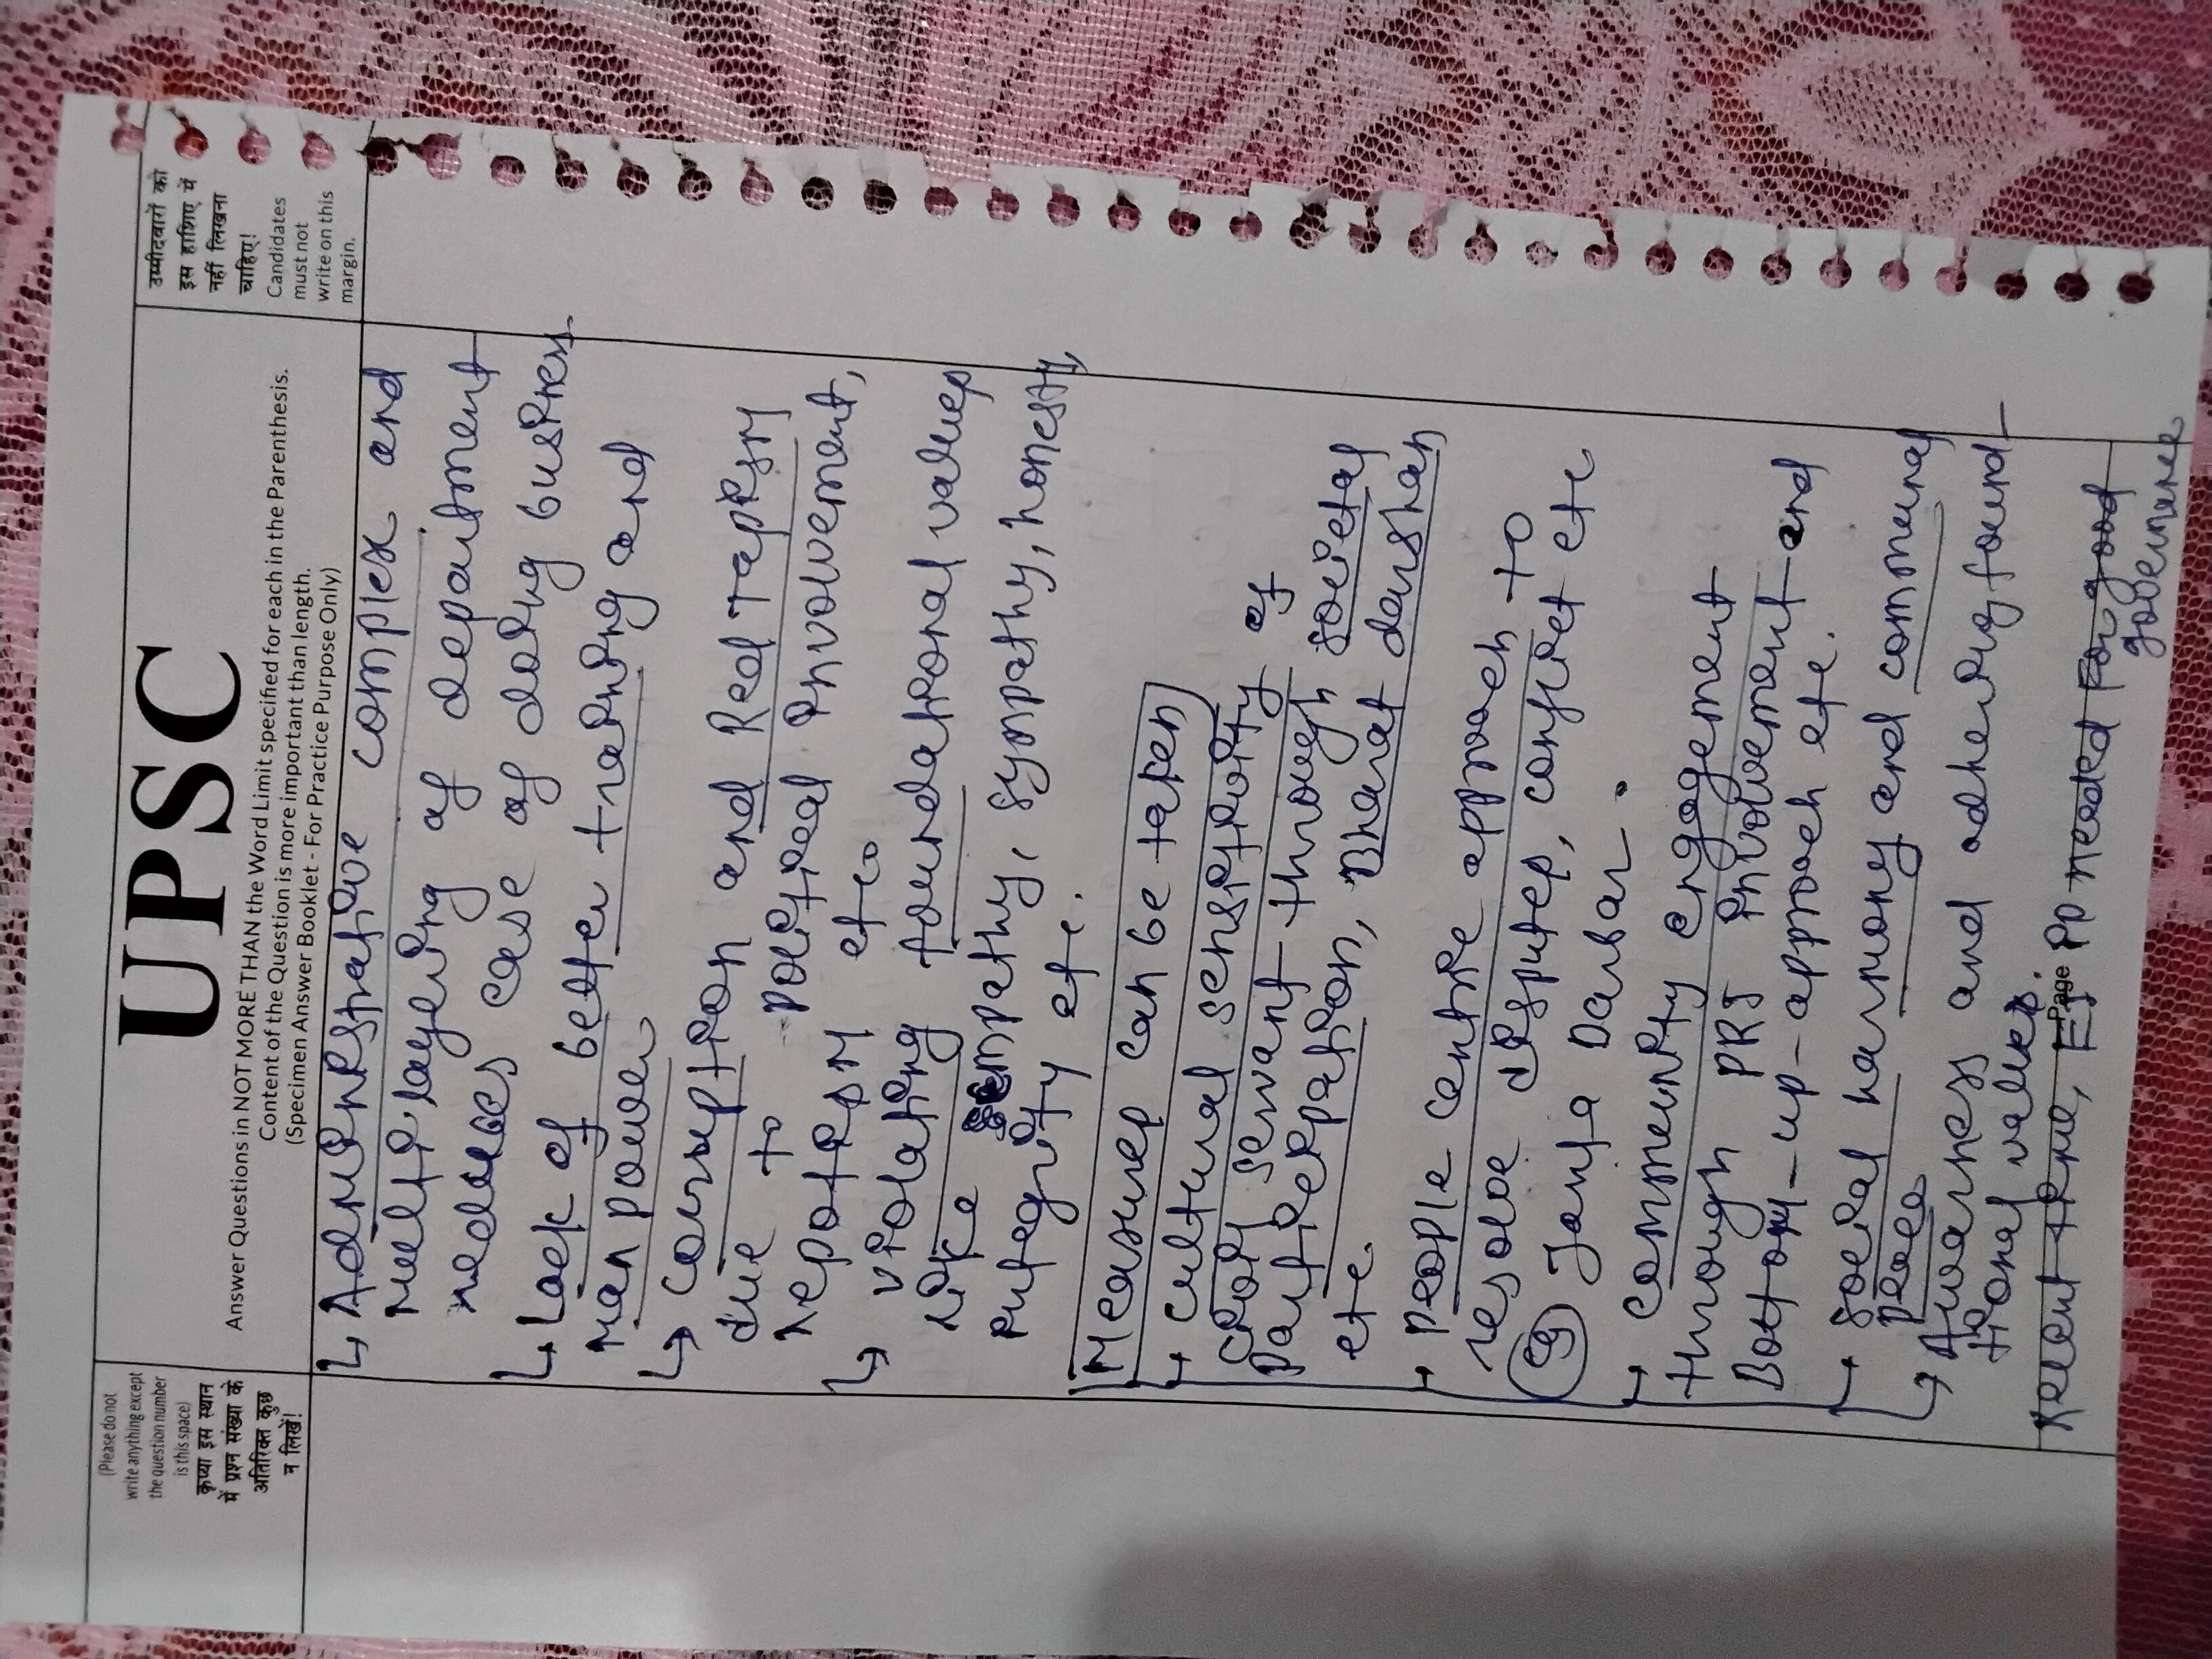 (Please do not
write anything except
the question number
is this space)
कृप्या इस स्थान
में प्रश्न संख्या के
अतिरिक्त कुछ
न लिखें!
UPSC
Answer Questions in NOT MORE THAN the Word Limit specified for each in the Parenthesis.
Content of the Question is more important than length.
(Specimen Answer Booklet - For Practice Purpose Only)
उम्मीदवारों को
इस हाशिए में
नहीं लिखना
चाहिए!
Candidates
must not
write on this
margin.
↳ Administrative complex and
Multi-layering of department
reduces ease of doing business
↳ Lack of better training and
Man power
↳ Corruption and Red Tapism
due to political involvement,
Nepotism etc
↳ violating foundational values
like empathy, sympathy, honesty,
integrity etc.
Measures can be taken
→ cultural sensitivity of
civil servant through societal
participation, Bharat darshan
etc.
→ people centric approach to
resolve disputes, conflict etc
eg Janta Darbar.
→ community engagement
through PRI involvement and
Bottom-up-approach etc.
→ social harmony and communal
peace
→ Awarness and adhering found-
tional values.
Recent time, EI is needed for good
governance
Page